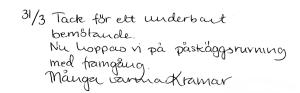 31/3 Tack för ett underbart
bemötande.
Nu hoppas vi på påskäggsrurning
med framgång.
Många varma Kramar